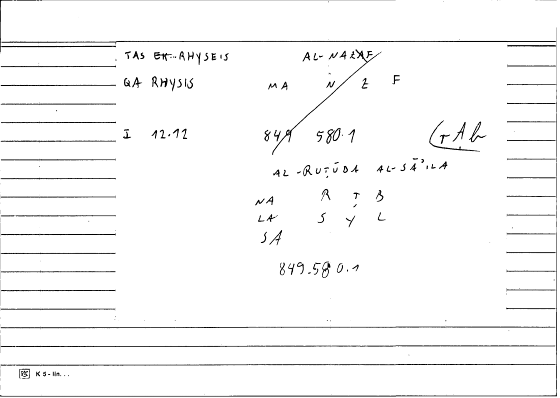 TAS EK-RHYSEIS AL-NAZAF
QA RHYSIS MA N Z F
I 12.12 849 580.1 (rAb
AL-RUṬŪBA AL-SĀ'ILA
NA R Ṭ B
LA S Y L
SA
849.580.1
K 5 - lin...